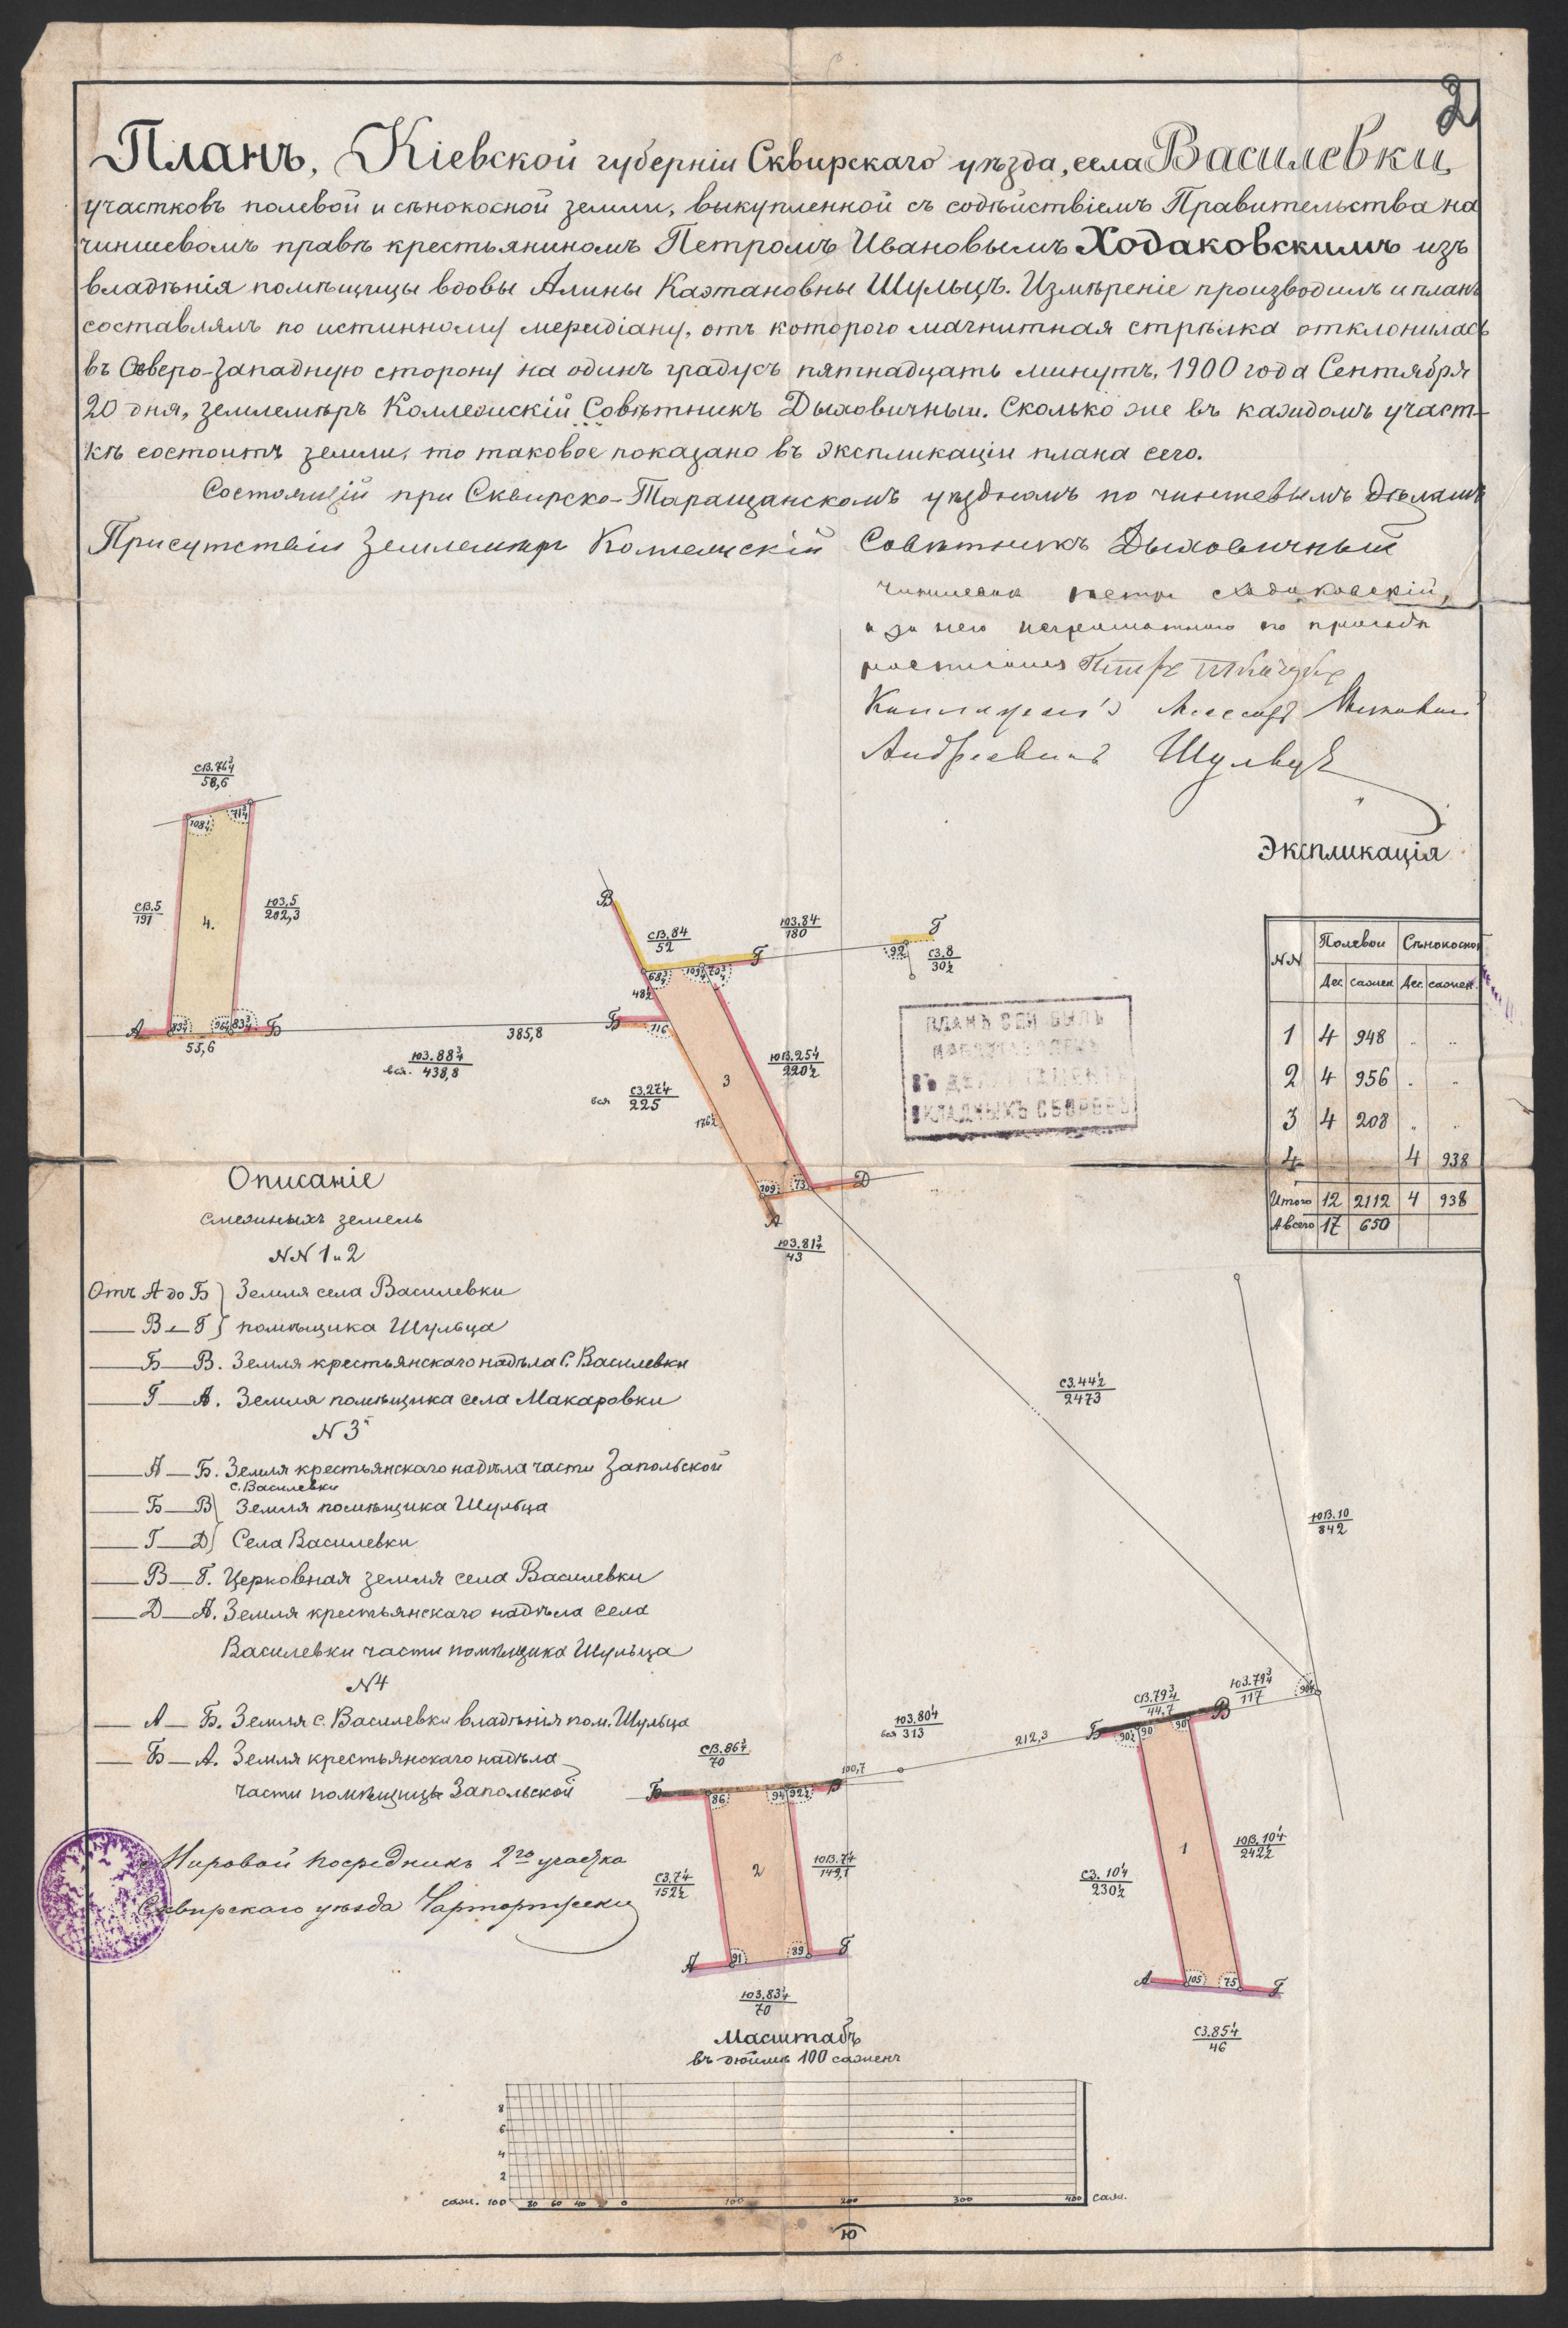 2
Планъ, Кіевской губерніи Сквирскаго уѣзда, села Василевки
участковъ полевой и сѣнокосной земли, выкупленной съ содѣйствіемъ Правительства на
чиншевомъ правѣ крестьяниномъ Петромъ Ивановымъ Ходаковскимъ изъ
владѣнія помѣщицы вдовы Алины Каэтановны Шульцъ. Измѣреніе производилъ и планъ
составлялъ по истинному меридіану, отъ котораго магнитная стрѣлка отклонилась
въ Сѣверо-Западную сторону на одинъ градусъ пятнадцать минутъ, 1900 года Сентября
20 дня, землемѣръ Коллежскій Совѣтникъ Дыховичный. Сколько же въ каждомъ участ-
кѣ состоитъ земли, то таковое показано въ экспликаціи плана сего.
Состоящій при Сквирско-Таращанскомъ уѣздномъ по чиншевымъ дѣламъ
Присутствіи Землемѣръ Коллежскій Совѣтникъ Дыховичный
чиншевик петръ ходаковскій,
а за него неграмотнаго по просьбѣ
росписался Петръ
Андреевичъ Шульцъ
СВ.76¾
58,6
108¼
71¾
СВ.5
191
4.
ЮЗ.5
202,3
А
83¾
96¼
83¾
Б
55,6
385,8
ЮЗ.88¾
вся. 438,8
В
СВ.84
52
ЮЗ.84
180
Г
Г
92
СЗ.8
30½
68¾
109¼
70¾
48½
Б
116
ЮВ.25¼
220½
3
вся СЗ.27¼
225
176½
109
73
Д
А
ЮЗ.81¾
43
ПЛАНЪ СЕЙ БЫЛЪ
ВЪ ДЕПАРТАМЕНТѢ
ОКЛАДНЫХЪ СБОРОВЪ
Экспликація
NN Полевой Сѣнокосной
Дес. сажен. Дес. сажен.
1 4 948 .. ..
2 4 956 . ..
3 4 208 .. ..
4 4 938
Итого 12 2112 4 938
А всего 17 650
Описаніе
смежныхъ земель
NN 1 и 2
Отъ А до Б } Земля села Василевки
— В — Г } помѣщика Шульца
— Б — В. Земля крестьянскаго надѣла с. Василевки
— Г — А. Земля помѣщика села Макаровки
N 3й
— А — Б. Земля крестьянскаго надѣла части Запольской
с. Василевки
— Б — В } Земля помѣщика Шульца
— Г — Д } Села Василевки
— В — Г. Церковная земля села Василевки
— Д — А. Земля крестьянскаго надѣла села
Василевки части помѣщика Шульца
N4
— А — Б. Земля с. Василевки владѣнія пом. Шульца
— Б — А. Земля крестьянскаго надѣла
части помѣщицы Запольской
Мировой посредникъ 2го участка
Сквирскаго уѣзда
СЗ.44½
2473
ЮВ.10
842
СВ.79¾
44,7
ЮЗ.79¾
117
90¼
Б
90½
90
90
В
ЮЗ.80¼
вся 313
212,3
100,7
СВ.86¼
70
Б
86
94
92½
В
СЗ.7¼
152½
2
ЮВ.7¼
149,1
А
91
89
Г
ЮЗ.83¼
70
СЗ.10¼
230½
1
ЮВ.10¼
242½
А
105
75
Г
СЗ.85¼
46
Масштабъ
въ дюймѣ 100 сажень
8
6
4
2
саж. 100 80 60 40 0 100 200 300 400 саж.
Ю